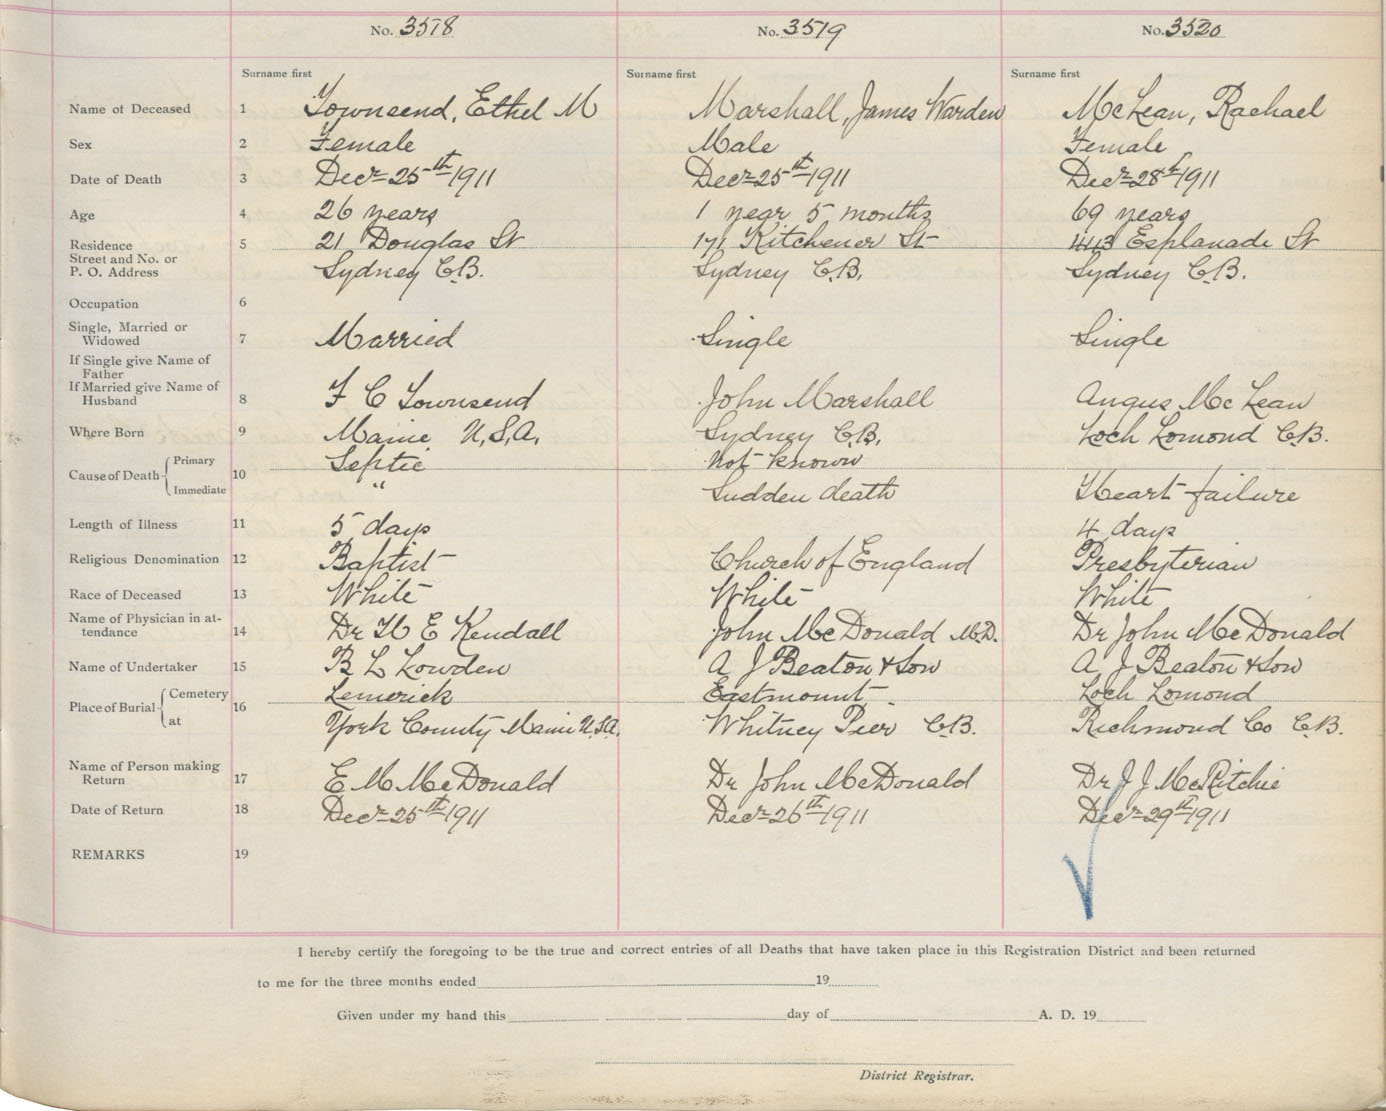 No. 3518 No. 3519 No. 3520
Surname first Surname first Surname first
Name of Deceased 1 Townsend, Ethel M Marshall, James Warden McLean, Rachael
Sex 2 Female Male Female
Date of Death 3 Decr 25th 1911 Decr 25th 1911 Decr 28th 1911
Age 4 26 years 1 year 5 months 69 years
Residence 5 21 Douglas St 171 Kitchener St Esplanade St
Street and No. or
P. O. Address Sydney C.B. Sydney C.B. Sydney C.B.
Occupation 6
Single, Married or
Widowed 7 Married Single Single
If Single give Name of
Father
If Married give Name of
Husband 8 F C Townsend John Marshall Angus McLean
Where Born 9 Maine U.S.A. Sydney C.B. Loch Lomond C.B.
Cause of Death 10 Primary Septic not known
Immediate " Sudden death Heart failure
Length of Illness 11 5 days 4 days
Religious Denomination 12 Baptist Church of England Presbyterian
Race of Deceased 13 White White White
Name of Physician in at-
tendance 14 Dr H E Kendall John McDonald M.D. Dr John McDonald
Name of Undertaker 15 B L Lowden A J Beaton & Son A J Beaton & Son
Place of Burial 16 Cemetery Lemerick Eastmount Loch Lomond
at York County Maine U.S.A. Whitney Pier C.B. Richmond Co C.B.
Name of Person making
Return 17 E M McDonald Dr John McDonald Dr J J McRitchie
Date of Return 18 Decr 25th 1911 Decr 26th 1911 Decr 29th 1911
REMARKS 19
I hereby certify the foregoing to be the true and correct entries of all Deaths that have taken place in this Registration District and been returned
to me for the three months ended 19
Given under my hand this day of A. D. 19
District Registrar.